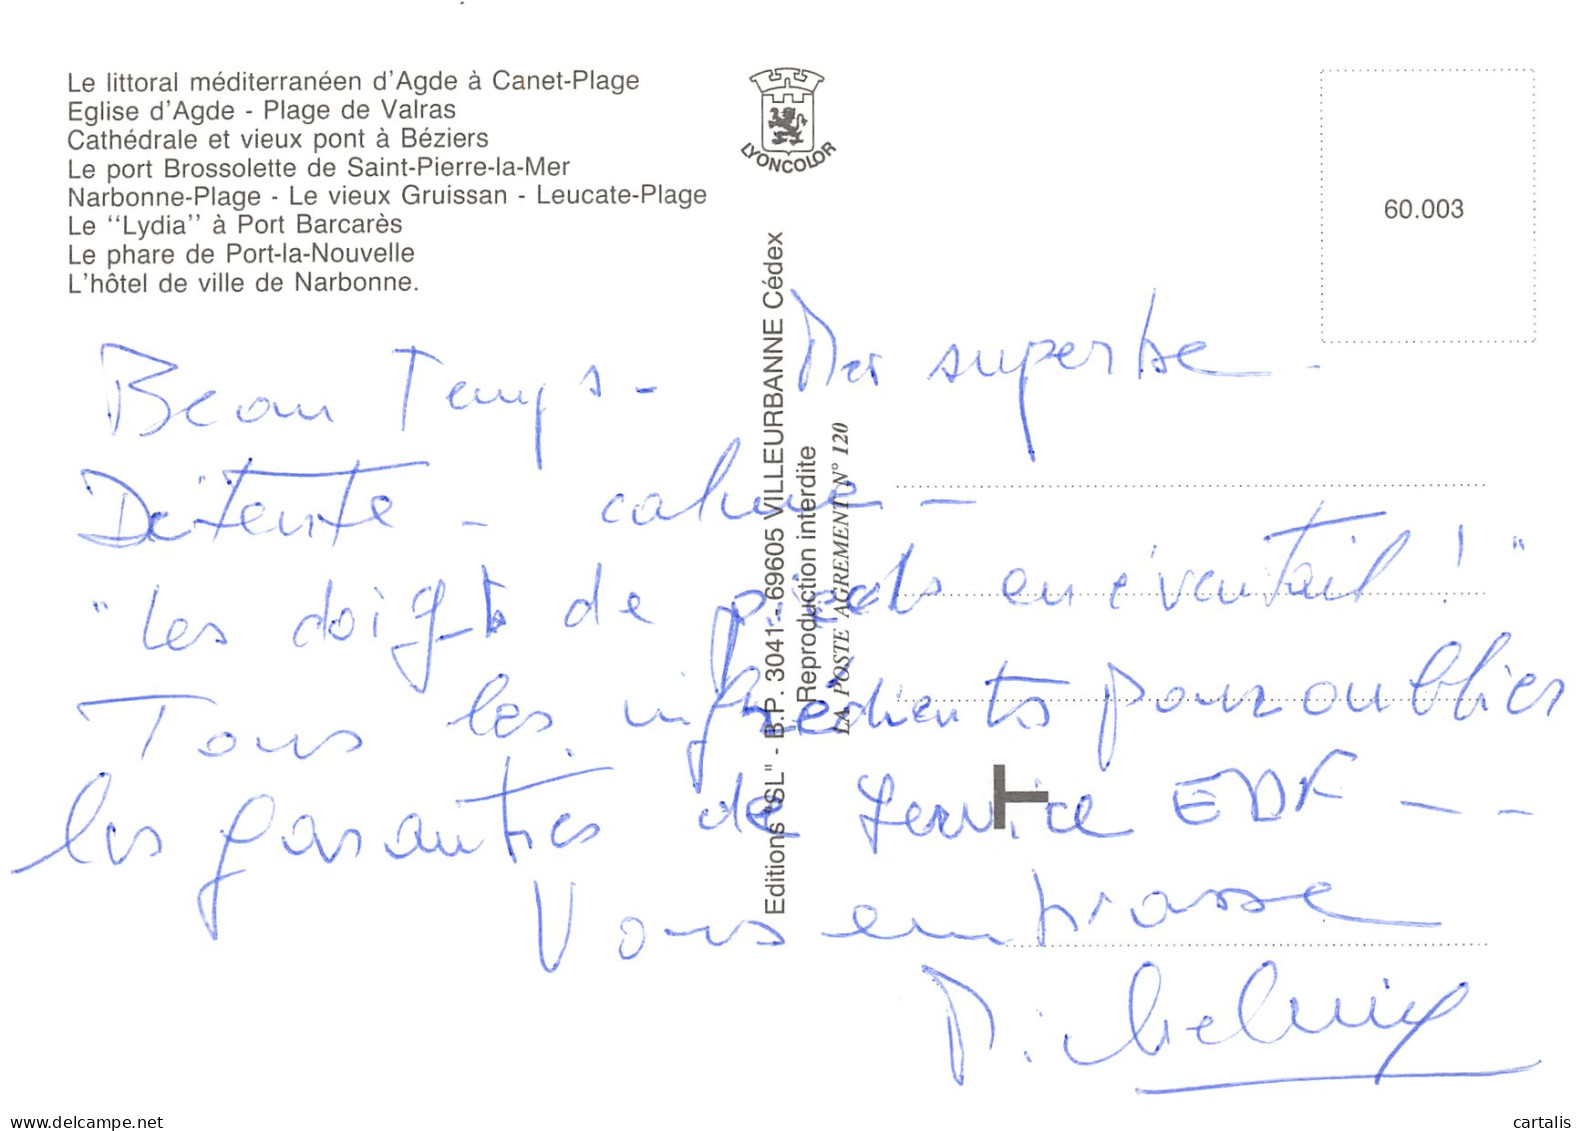 Le littoral méditerranéen d'Agde à Canet-Plage
Eglise d'Agde - Plage de Valras
Cathédrale et vieux pont à Béziers
Le port Brossolette de Saint-Pierre-la-Mer
Narbonne-Plage - Le vieux Gruissan - Leucate-Plage
Le "Lydia" à Port Barcarès
Le phare de Port-la-Nouvelle
L'hôtel de ville de Narbonne.
LYONCOLOR
60.003
Editions "SL" - B.P. 3041 - 69605 VILLEURBANNE Cédex
Reproduction interdite
LA POSTE AGREMENT N° 120
Beau Temps - Mer superbe -
Détente - calme -
"Les doigts de pieds en éventail !"
Tous les ingrédients pour oublier
les garanties de service EDF - - -
Vous embrasse
My-delcampe.net
cartalis